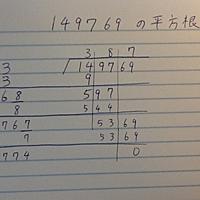 149769 の平方根
3 8 7
3 14 97 69
3 9
68 5 97
8 5 44
767 53 69
7 53 69
774 0